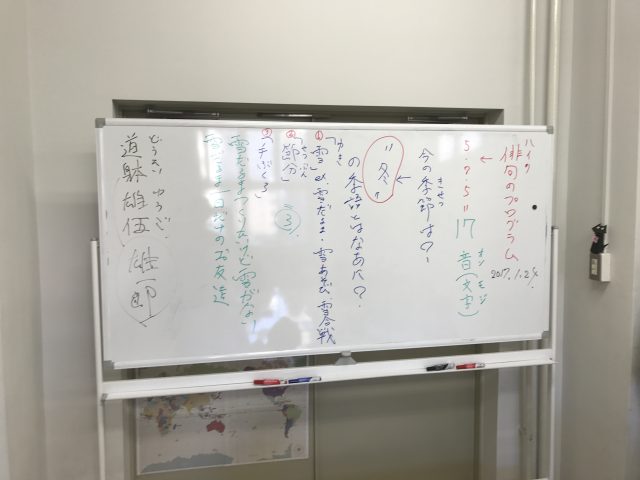 ハイク
俳句のプログラム
2017.1.28.
5.7.5＝17音(文字)
オン モジ
きせつ
今の季節は?
"冬"
の季語とはなあに?
ゆき
①「雪」雪だま・雪あそび・雪合戦
せつぶん
②「節分」
③
③「手ぶくろ」
雪だるま一日だけのお友達
どうたい ゆうご
道躰雄伍
雄一郎